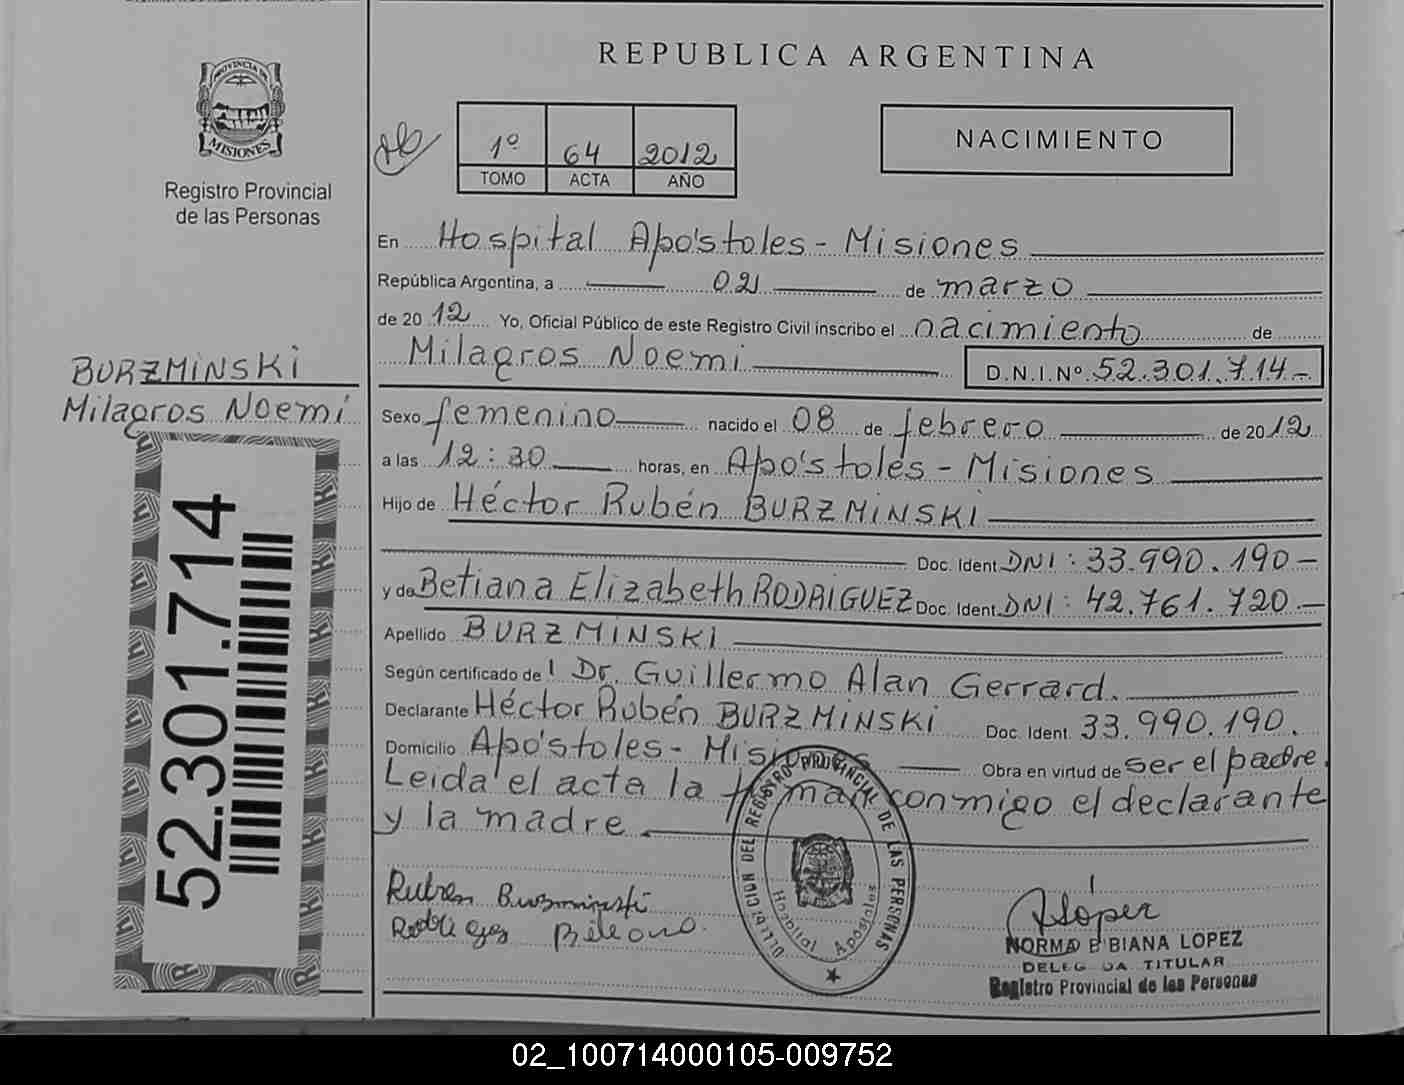 REPUBLICA ARGENTINA
PROVINCIA DE
MISIONES
Registro Provincial
de las Personas
1º 64 2012
TOMO ACTA AÑO
NACIMIENTO
En Hospital Apóstoles - Misiones
República Argentina, a 02 de marzo
de 2012 Yo, Oficial Público de este Registro Civil inscribo el nacimiento de
Milagros Noemi D.N.I.Nº 52.301.714-
BURZMINSKI
Milagros Noemi
Sexo femenino nacido el 08 de febrero de 2012
a las 12:30 horas, en Apóstoles - Misiones
Hijo de Héctor Rubén BURZMINSKI
Doc. Ident. DNI: 33.990.190-
y de Betiana Elizabeth RODRIGUEZ Doc. Ident. DNI: 42.761.720.-
Apellido BURZMINSKI
Según certificado de l Dr. Guillermo Alan Gerrard.
Declarante Héctor Rubén BURZMINSKI Doc. Ident. 33.990.190.
Domicilio Apóstoles - Misiones Obra en virtud de ser el padre.
Leida el acta la firman conmigo el declarante
y la madre.
52.301.714
Ruben Burzminski
DELEGACION DEL REGISTRO PROVINCIAL DE LAS PERSONAS
Hospital Apostoles
NORMA BIBIANA LOPEZ
DELEGADA TITULAR
Registro Provincial de las Personas
02_100714000105-009752